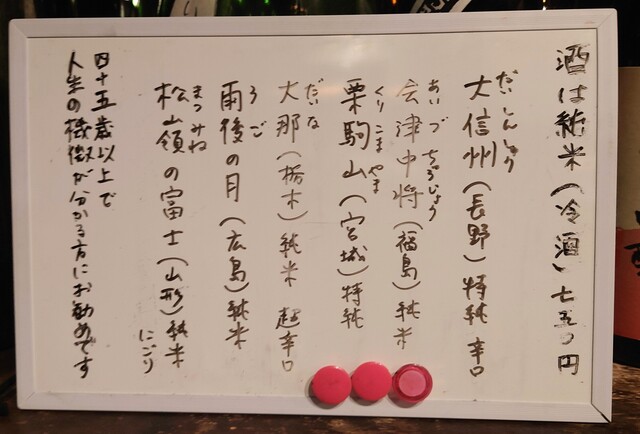 酒は純米(冷酒)七五〇円
だいしんしゅう
大信州(長野)特純 辛口
あいづちゅうじょう
会津中将(福島)純米
くりこまやま
栗駒山(宮城)特純
だいな
大那(栃木)純米 超辛口
うご
雨後の月(広島)純米
まつみね
松嶺の富士(山形)純米
にごり
四十五歳以上で
人生の機微が分かる方にお勧めです